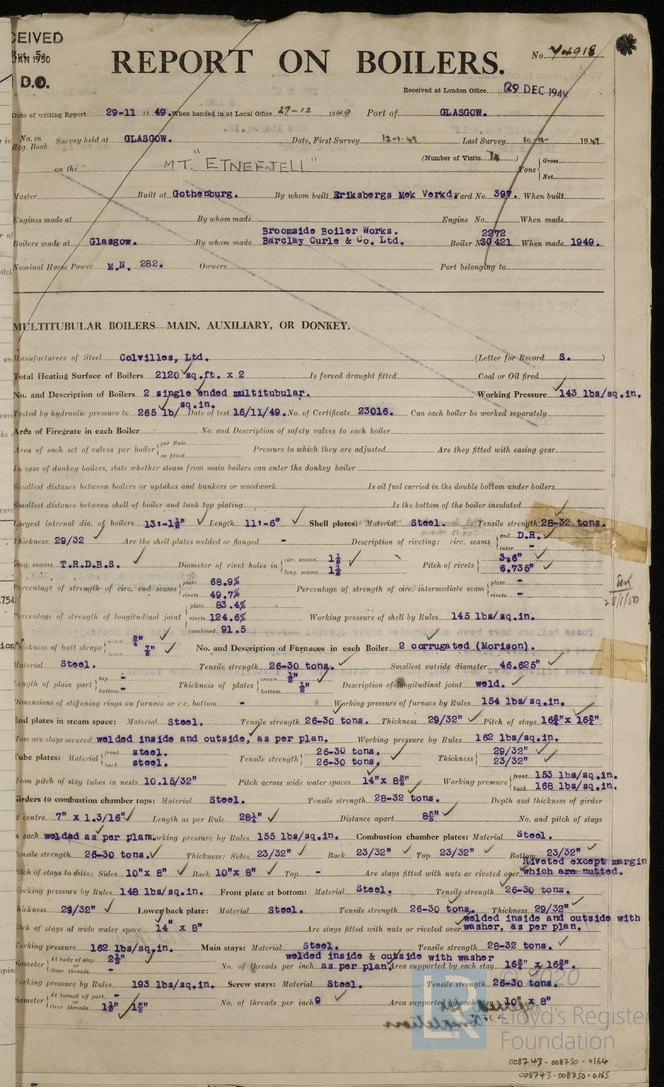 CEIVED
JAN 1950
D.O.
REPORT ON BOILERS.
No. 74918
Received at London Office 29 DEC 1949
Date of writing Report 29-11 1949. When handed in at Local Office 27-12 1949 Port of GLASGOW.
No. in Reg. Book. Survey held at GLASGOW. Date, First Survey 12-1-49 Last Survey 1949
(Number of Visits 14) Tons { Gross Net
on the M.T. "ETNEFJELL"
Master Built at Gothenburg. By whom built Eriksbergs Mek Verkd. Yard No. 397. When built
Engines made at By whom made Engine No. When made
Boilers made at Glasgow. By whom made Broomside Boiler Works. Barclay Curle & Co. Ltd. Boiler No. 2272 30421 When made 1949.
Nominal Horse Power M.N. 282. Owners Port belonging to
MULTITUBULAR BOILERS MAIN, AUXILIARY, OR DONKEY.
Manufacturers of Steel Colvilles, Ltd. (Letter for Record S. )
Total Heating Surface of Boilers 2120 sq.ft. x 2 Is forced draught fitted Coal or Oil fired
No. and Description of Boilers 2 single ended multitubular. Working Pressure 143 lbs/sq.in.
Tested by hydraulic pressure to 265 lb/sq.in. Date of test 16/11/49. No. of Certificate 23016. Can each boiler be worked separately
Area of Firegrate in each Boiler No. and Description of safety valves to each boiler
Area of each set of valves per boiler { per Rule as fitted Pressure to which they are adjusted Are they fitted with easing gear
In case of donkey boilers, state whether steam from main boilers can enter the donkey boiler
Smallest distance between boilers or uptakes and bunkers or woodwork Is oil fuel carried in the double bottom under boilers
Smallest distance between shell of boiler and tank top plating Is the bottom of the boiler insulated
Largest internal dia. of boilers 13'-1½" Length 11'-6" Shell plates: Material Steel. Tensile strength 28-32 tons.
Thickness 29/32 Are the shell plates welded or flanged - Description of riveting: circ. seams { end D.R. inter -
long. seams T.R.D.B.S. Diameter of rivet holes in { circ. seams 1⅛ long. seams 1⅛ Pitch of rivets { 3.6" 6.735"
Percentage of strength of circ. end seams { plate 68.9% rivets 49.7% Percentage of strength of circ. intermediate seams { plate - rivets -
Percentage of strength of longitudinal joint { plate 83.4% rivets 124.6% combined 91.5 Working pressure of shell by Rules 145 lbs/sq.in.
Thickness of butt straps { outer inner ⅞" No. and Description of Furnaces in each Boiler 2 corrugated (Morison).
Material Steel. Tensile strength 26-30 tons. Smallest outside diameter 46.625"
Length of plain part { top - bottom - Thickness of plates { crown ½" bottom ½" Description of longitudinal joint weld.
Dimensions of stiffening rings on furnace or c.c. bottom - Working pressure of furnace by Rules 154 lbs/sq.in.
End plates in steam space: Material Steel. Tensile strength 26-30 tons. Thickness 29/32" Pitch of stays 16¾"x 16¾"
How are stays secured welded inside and outside, as per plan. Working pressure by Rules 162 lbs/sq.in.
Tube plates: Material { front steel. back steel. Tensile strength { 26-30 tons. 26-30 tons. Thickness { 29/32" 23/32"
Mean pitch of stay tubes in nests 10.15/32" Pitch across wide water spaces 14"x 8¾" Working pressure { front 153 lbs/sq.in. back 168 lbs/sq.in.
Girders to combustion chamber tops: Material Steel. Tensile strength 28-32 tons. Depth and thickness of girder
at centre 7" x 1.3/16" Length as per Rule 28½" Distance apart 8¾" No. and pitch of stays
in each welded as per plan. Working pressure by Rules 155 lbs/sq.in. Combustion chamber plates: Material Steel.
Tensile strength 26-30 tons. Thickness: Sides 23/32" Back 23/32" Top 23/32" Bottom 23/32"
Pitch of stays to ditto: Sides 10"x 8" Back 10"x 8" Top - Are stays fitted with nuts or riveted over Riveted except margin which are nutted.
Working pressure by Rules 148 lbs/sq.in. Front plate at bottom: Material Steel. Tensile strength 26-30 tons.
Thickness 29/32" Lower back plate: Material Steel. Tensile strength 26-30 tons. Thickness 29/32"
Pitch of stays at wide water space 14" x 8" Are stays fitted with nuts or riveted over welded inside and outside with washer, as per plan.
Working pressure 162 lbs/sq.in. Main stays: Material Steel. Tensile strength 28-32 tons.
Diameter { At body of stay 2½" Over threads - No. of threads per inch welded inside & outside with washer as per plan. Area supported by each stay 16¾" x 16¾"
Working pressure by Rules 193 lbs/sq.in. Screw stays: Material Steel. Tensile strength 26-30 tons.
Diameter { At turned off part - Over threads No. of threads per inch 9 Area supported by each 10" x 8"
© 2020
LR
Lloyd's Register
Foundation
008743-008750-0164
008743-008750-0165